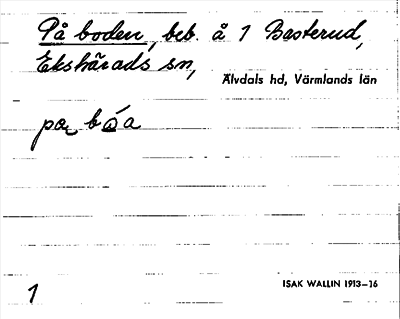 På boden, beb. å 1 Basterud,
Ekshärads sn,
Älvdals hd, Värmlands län
pa bóa
ISAK WALLIN 1913–16
1